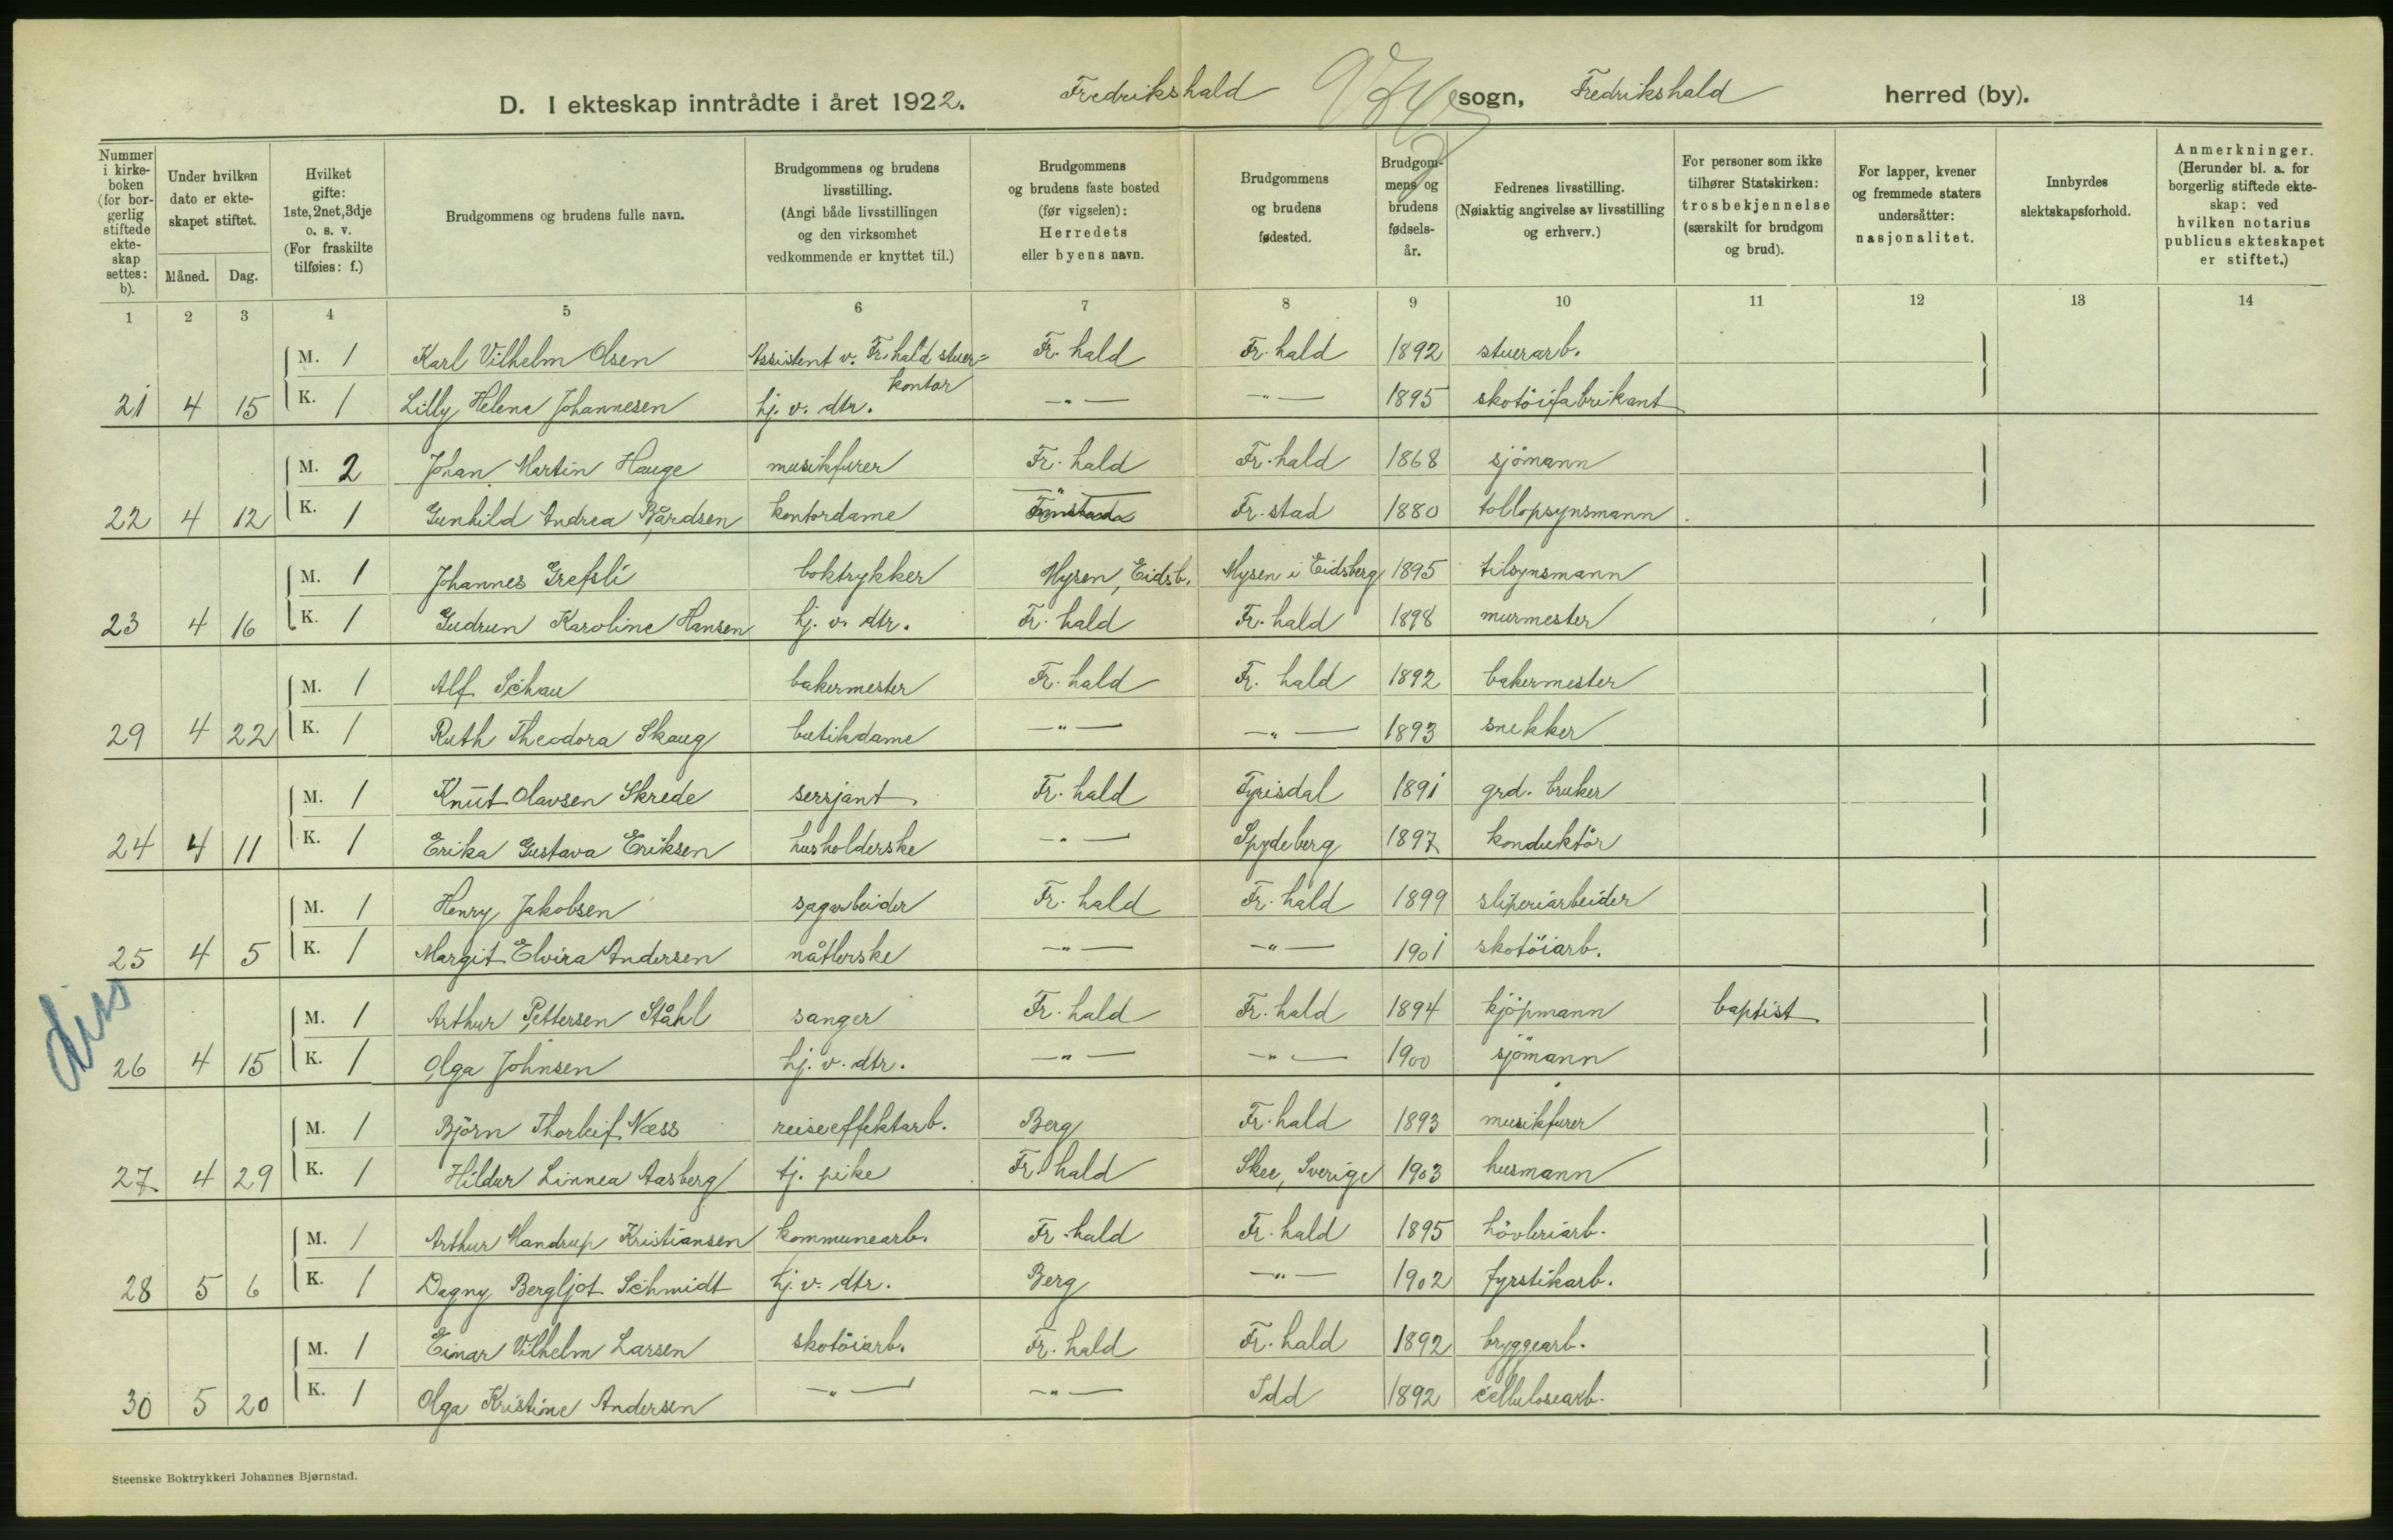 D. I ekteskap inntrådte i året 1922. Fredrikshald sogn, Fredrikshald herred (by).
Nummer i kirkeboken (for borgerlig stiftede ekteskap settes: b).
Under hvilken dato er ekteskapet stiftet.
Måned. Dag.
Hvilket gifte: 1ste, 2net, 3dje o. s. v. (For fraskilte tilføies: f.)
Brudgommens og brudens fulle navn.
Brudgommens og brudens livsstilling. (Angi både livsstillingen og den virksomhet vedkommende er knyttet til.)
Brudgommens og brudens faste bosted (før vigselen): Herredets eller byens navn.
Brudgommens og brudens fødested.
Brudgommens og brudens fødselsår.
Fedrenes livsstilling. (Nøiaktig angivelse av livsstilling og erhverv.)
For personer som ikke tilhører Statskirken: trosbekjennelse (særskilt for brudgom og brud).
For lapper, kvener og fremmede staters undersåtter: nasjonalitet.
Innbyrdes slektskapsforhold.
Anmerkninger. (Herunder bl. a. for borgerlig stiftede ekteskap: ved hvilken notarius publicus ekteskapet er stiftet.)
1 2 3 4 5 6 7 8 9 10 11 12 13 14
M. 1 Karl Vilhelm Olsen Assistent v. Fr.hald stuer= kontor Fr. hald Fr. hald 1892 stuerarb.
21 4 15 K. 1 Lilly Helene Johannesen hj. v. dtr. -"- -"- 1895 skotöifabrikant
M. 2 Johan Martin Hauge musikfurer Fr. hald Fr. hald 1868 sjömann
22 4 12 K. 1 Gunhild Andrea Bårdsen kontordame -"- Fr. stad 1880 tollopsynsmann
M. 1 Johannes Grefsli boktrykker Mysen, Eidsb. Mysen i Eidsberg 1895 tilsynsmann
23 4 16 K. 1 Gudrun Karoline Hansen hj. v. dtr. Fr. hald Fr. hald 1898 murmester
M. 1 Alf Schau bakermester Fr. hald Fr. hald 1892 bakermester
29 4 22 K. 1 Ruth Theodora Skaug butikdame -"- -"- 1893 snekker
M. 1 Knut Olavsen Skrede sersjant Fr. hald Fyrisdal 1891 grd. bruker
24 4 11 K. 1 Erika Gustava Eriksen husholderske -"- Spydeberg 1897 konduktör
M. 1 Henry Jakobsen sagarbeider Fr. hald Fr. hald 1899 sliperiarbeider
25 4 5 K. 1 Margit Elvira Andersen nåtlerske -"- -"- 1901 skotöiarb.
M. 1 Arthur Pettersen Ståhl sanger Fr. hald Fr. hald 1894 kjöpmann baptist
26 4 15 K. 1 Olga Johnsen hj. v. dtr. -"- -"- 1900 sjömann
M. 1 Björn Thorleif Næss reiseeffektarb. Berg Fr. hald 1893 musikfurer
27 4 29 K. 1 Hildur Linnea Aasberg tj. pike Fr. hald Skee, Sverige 1903 husmann
M. 1 Arthur Mandrup Kristiansen kommunearb. Fr. hald Fr. hald 1895 hövleriarb.
28 5 6 K. 1 Dagny Bergljot Schmidt hj. v. dtr. Berg -"- 1902 fyrstikarb.
M. 1 Einar Vilhelm Larsen skotöiarb. Fr. hald Fr. hald 1892 bryggearb.
30 5 20 K. 1 Olga Kristine Andersen -"- -"- Idd 1892 cellulosearb.
Steenske Boktrykkeri Johannes Bjørnstad.